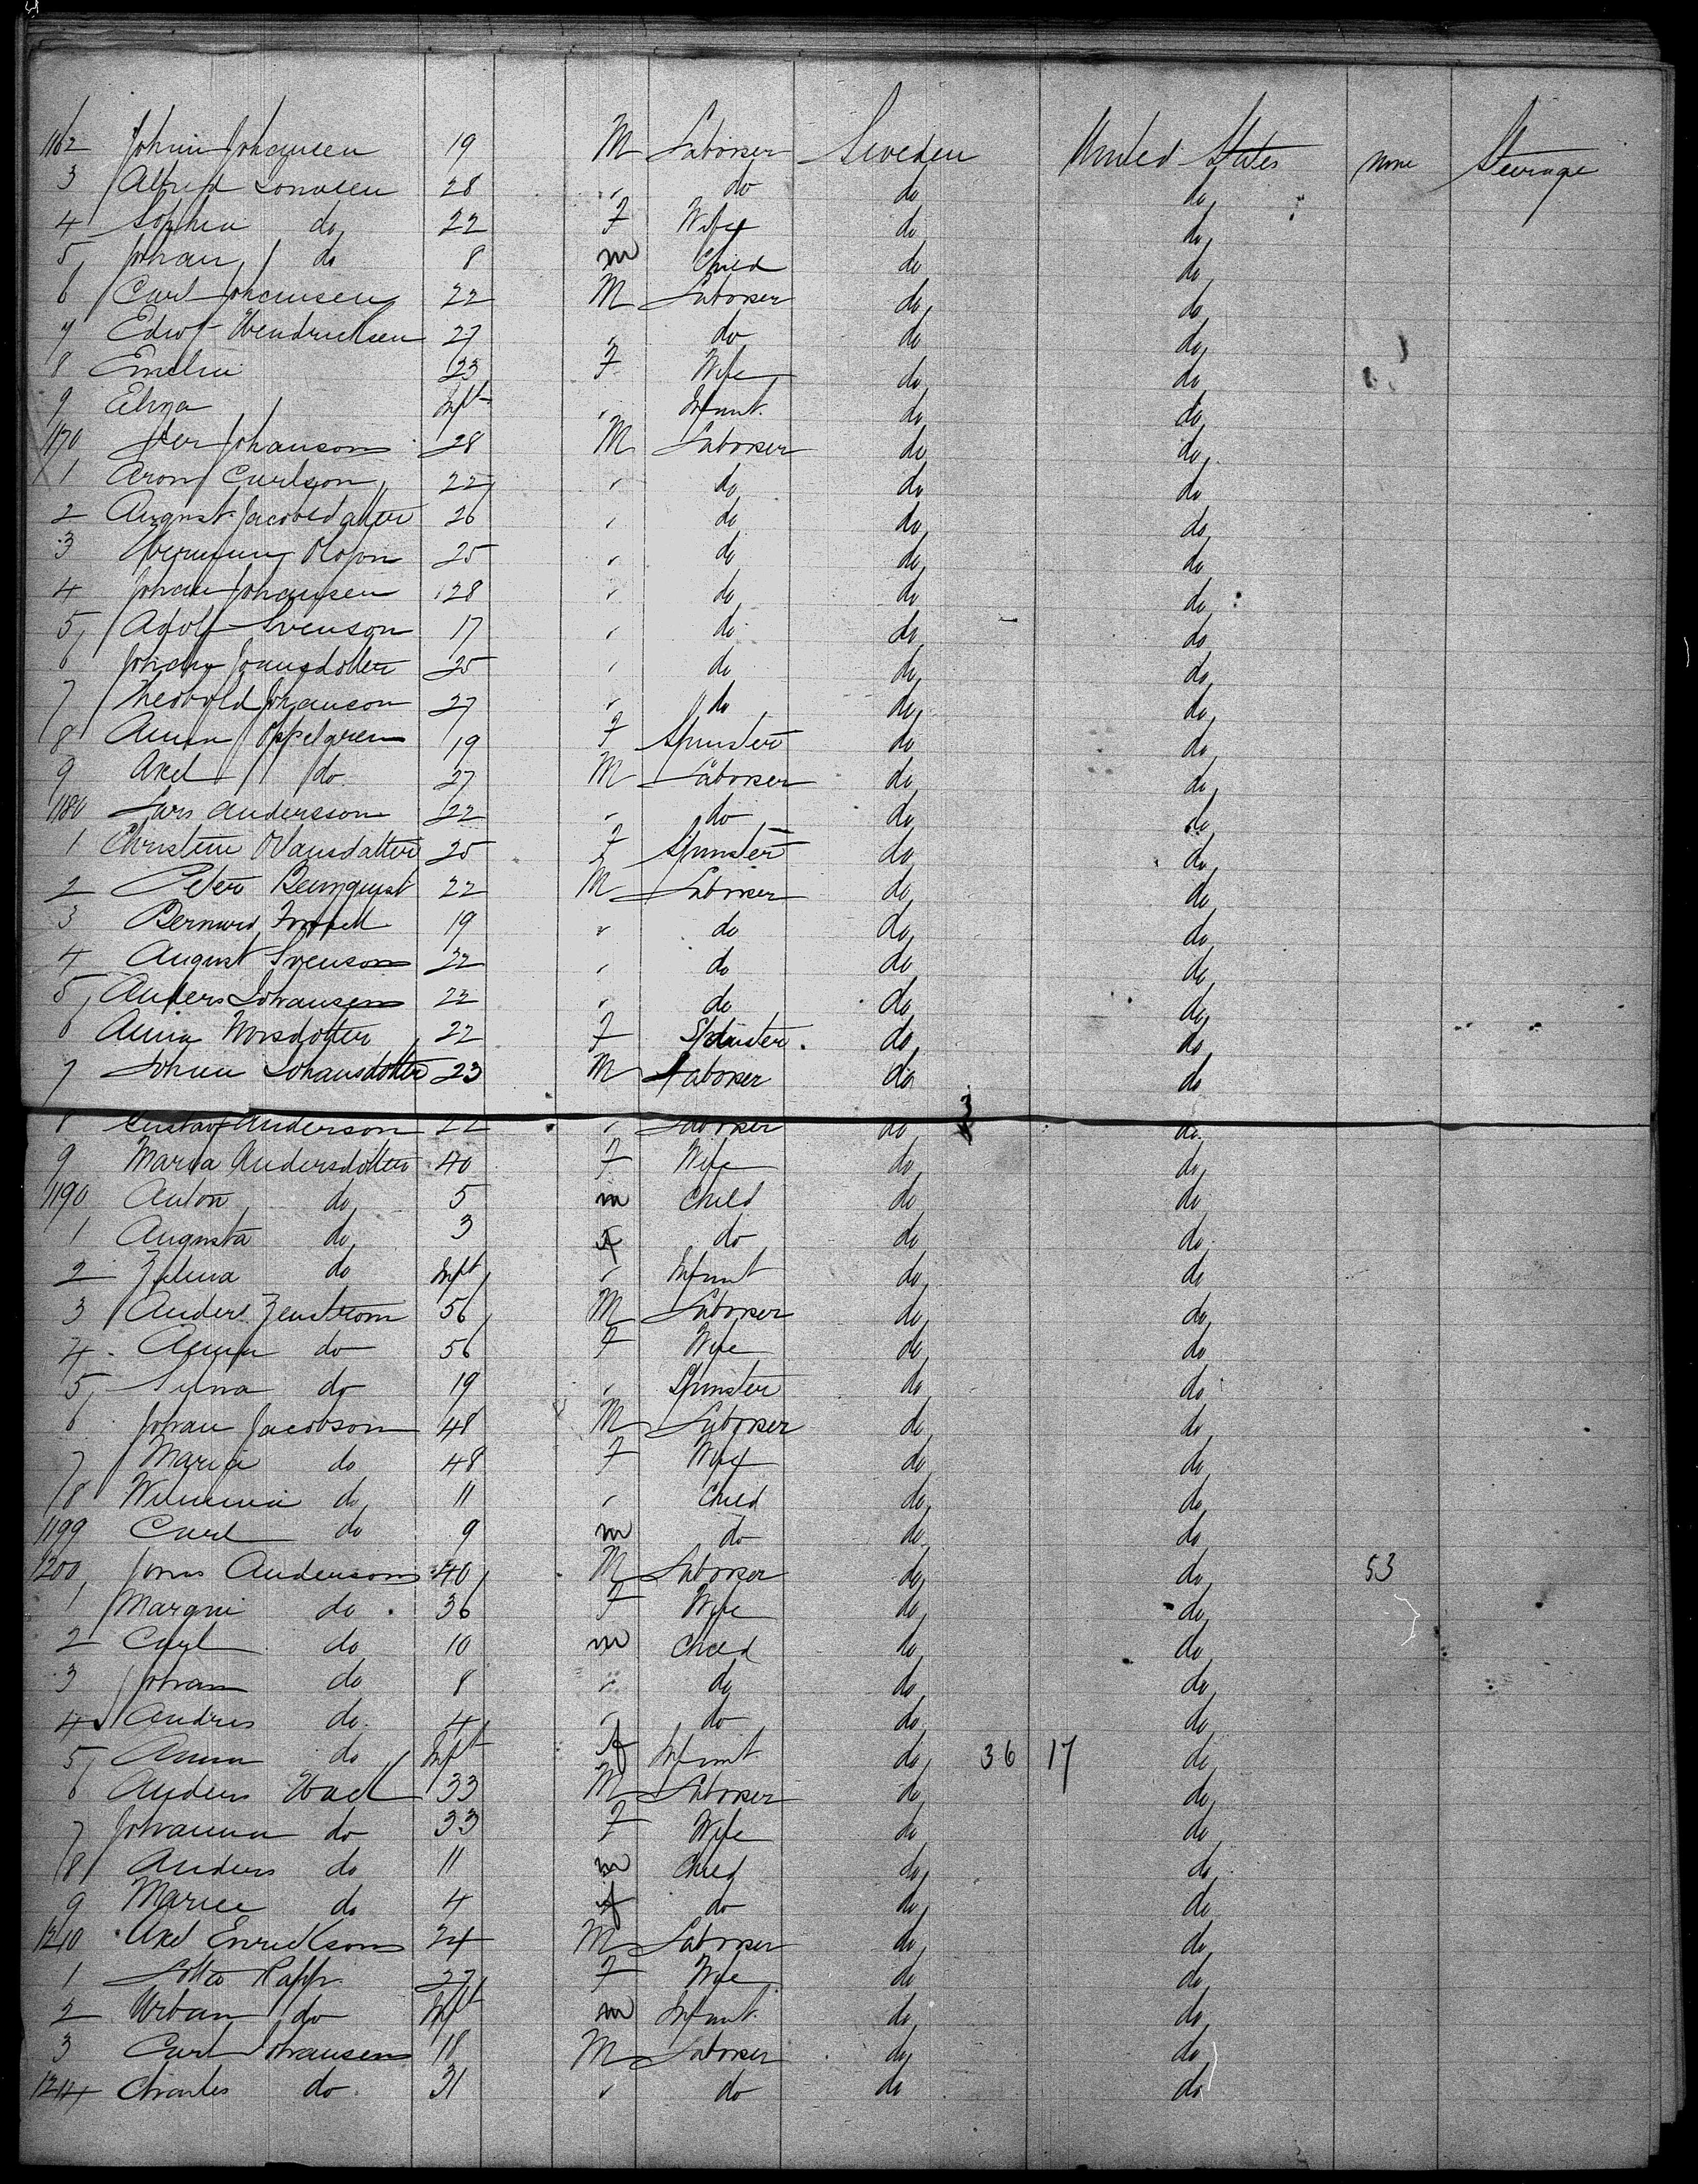 1162 Johan Johansen 19 M Laborer Sweden United States none Steerage
3 Alfred 28 " do do do
4 Sophia do 22 F Wife do do
5 Johan do 8 m Child do do
6 Carl Johansen 22 M Laborer do do
7 Hendricksen 27 " do do do
8 Emelia 23 F Wife do do
9 Elina Inft " Infant do do
1170 Per Johanson 28 M Laborer do do
1 Aron Carlson 22 " do do do
2 August Jacobsdatter 26 " do do do
3 Herman Olofson 25 " do do do
4 Johan Johansen 28 " do do do
5 Adolf Svenson 17 " do do do
6 Johan Jonasdotter 25 " do do do
7 Theobold Johanson 27 " do do do
8 Anna Appelgren 19 F Spinster do do
9 Axel do 27 M Laborer do do
1180 Lars Andersson 22 " do do do
1 Christine 25 F Spinster do do
2 Peter 22 M Laborer do do
3 Bernard 19 " do do do
4 August Svenson 22 " do do do
5 Anders Johansen 22 " do do do
6 Anna 22 F Spinster do do
7 Johan Johansdotter 23 M Laborer do do
8 Gustaf Anderson 22 " Laborer do 3 do
9 Maria Andersdotter 40 F Wife do do
1190 Anton do 5 m Child do do
1 Augusta do 3 f do do do
2 do Inft " Infant do do
3 Anders Zenstrom 56 M Laborer do do
4 Anna do 56 F Wife do do
5 do 19 " Spinster do do
6 Johan Jacobson 48 M Laborer do do
7 Maria do 48 F Wife do do
8 do 11 " Child do do
1199 Carl do 9 m do do do
1200 Jonas Anderson 40 M Laborer do do 53
1 do 36 F Wife do do
2 Carl do 10 m Child do do
3 Johan do 8 " do do do
4 Andres do 4 " do do do
5 Anna do Inft f Infant do 36 17 do
6 Anders 33 M Laborer do do
7 Johanna do 33 F Wife do do
8 Anders do 11 m Child do do
9 Marie do 4 f do do do
1210 Axel Enrickson 24 M Laborer do do
1 Lotta Rapp 27 F Wife do do
2 Urban do Inft m Infant do do
3 Carl Johansen 18 M Laborer do do
1214 Charles do 31 " do do do